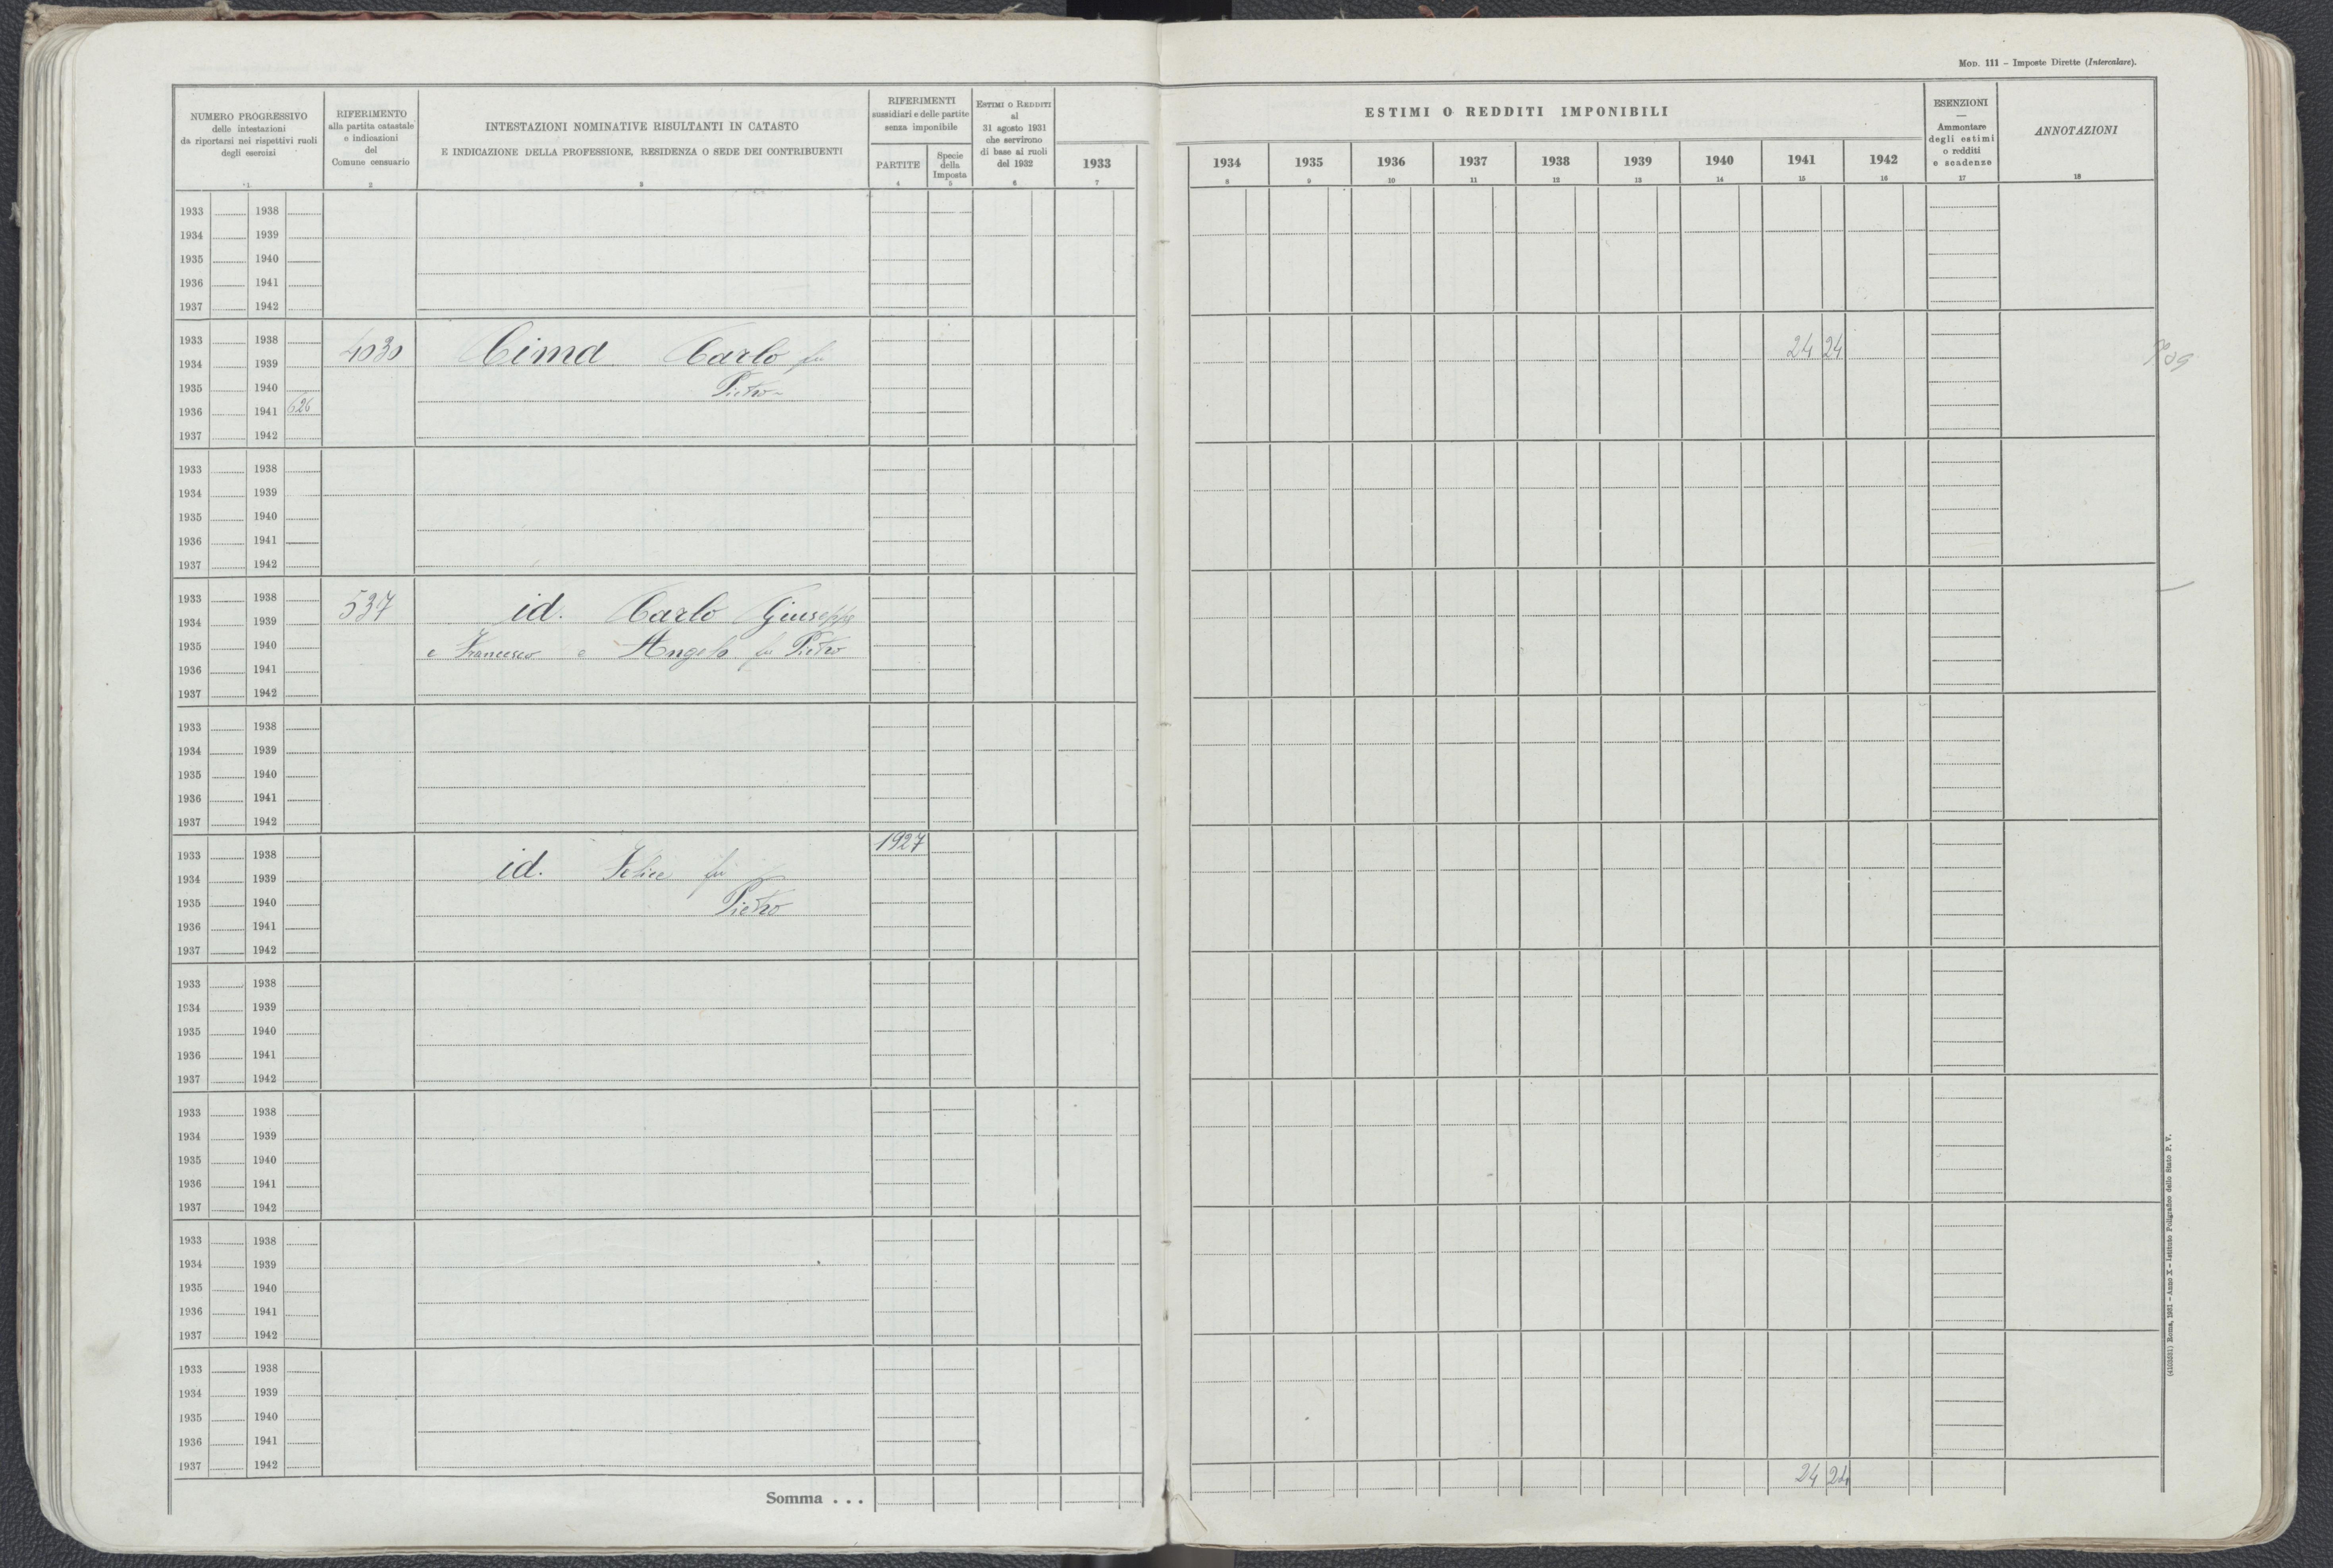 Mod. 111 – Imposte Dirette (Intercalare).
NUMERO PROGRESSIVO
delle intestazioni
da riportarsi nei rispettivi ruoli
degli esercizi
1
RIFERIMENTO
alla partita catastale
e indicazioni
del
Comune censuario
2
INTESTAZIONI NOMINATIVE RISULTANTI IN CATASTO
E INDICAZIONE DELLA PROFESSIONE, RESIDENZA O SEDE DEI CONTRIBUENTI
3
RIFERIMENTI
sussidiari e delle partite
senza imponibile
PARTITE
4
Specie
della
Imposta
5
Estimi o Redditi
al
31 agosto 1931
che servirono
di base ai ruoli
del 1932
6
ESTIMI O REDDITI IMPONIBILI
1933 1934 1935 1936 1937 1938 1939 1940 1941 1942
7 8 9 10 11 12 13 14 15 16
ESENZIONI
—
Ammontare
degli estimi
o redditi
e scadenze
17
ANNOTAZIONI
18
1933 1938
1934 1939
1935 1940
1936 1941
1937 1942
1933 1938
4030 Cima Carlo fu 24 24
1934 1939
1935 1940 Pietro
1936 1941 626
1937 1942
1933 1938
1934 1939
1935 1940
1936 1941
1937 1942
1933 1938
537 id. Carlo Giuseppe
1934 1939
1935 1940 e Francesco e Angelo fu Pietro
1936 1941
1937 1942
1933 1938
1934 1939
1935 1940
1936 1941
1937 1942
1927
1933 1938
id. Felice fu
1934 1939
1935 1940 Pietro
1936 1941
1937 1942
1933 1938
1934 1939
1935 1940
1936 1941
1937 1942
1933 1938
1934 1939
1935 1940
1936 1941
1937 1942
1933 1938
1934 1939
1935 1940
1936 1941
1937 1942
1933 1938
1934 1939
1935 1940
1936 1941
1937 1942
Somma . . . 24 24
(4103581) Roma, 1931 – Anno X – Istituto Poligrafico dello Stato P. V.